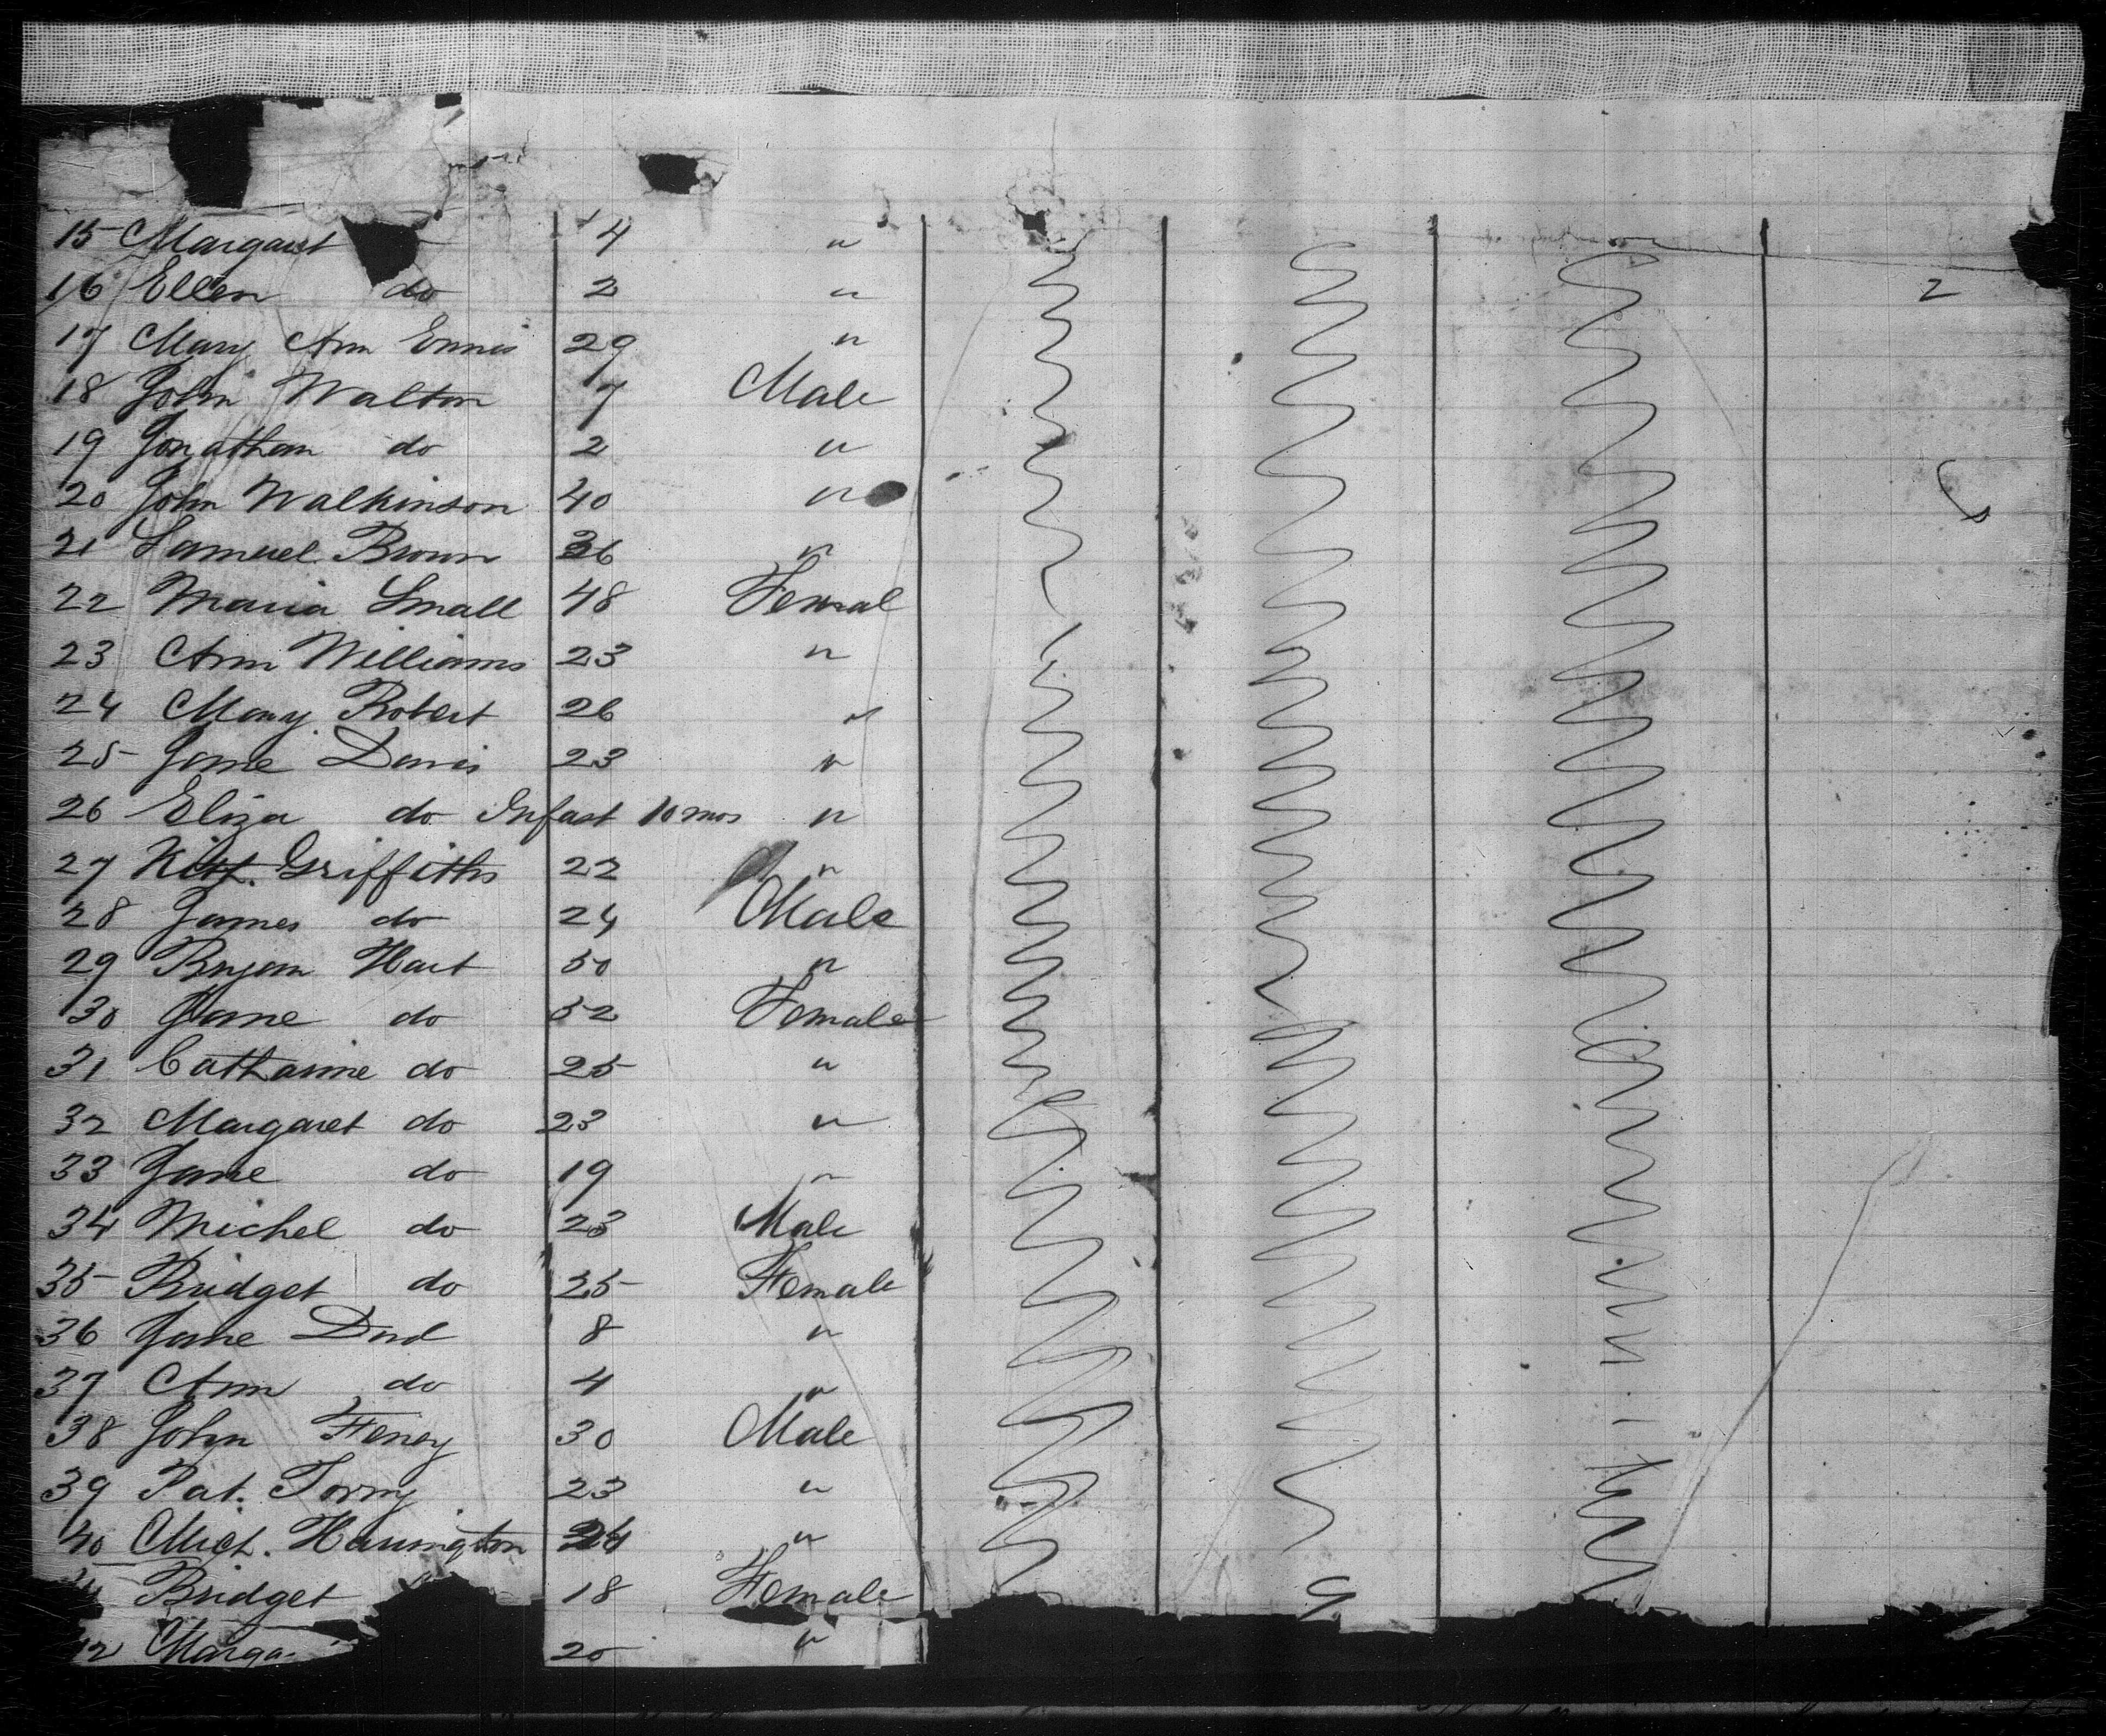 15 Margaret 4 "
16 Ellen do 2 " 2
17 Mary Ann Ennis 29 "
18 John Walton 7 Male
19 Jonathan do 2 "
20 John Walkinson 40 "
21 Samuel Brown 36 "
22 Maria Small 48 Femal
23 Ann Williams 23 "
24 Mary Robert 26 "
25 Jane Davis 23 "
26 Eliza do Infast 10 mos "
27 Griffiths 22 "
28 James do 24 Male
29 Bryan Hart 50 "
30 Jane do 52 Female
31 Catharine do 25 "
32 Margaret do 23 "
33 Jane do 19 "
34 Michel do 23 Male
35 Bridget do 25 Female
36 Jane Dod 8 "
37 Ann do 4 "
38 John Feney 30 Male
39 Pat. Torny 23 "
40 Mich. Harrington 24 "
Bridget 18 Female
42 Marga 20 "